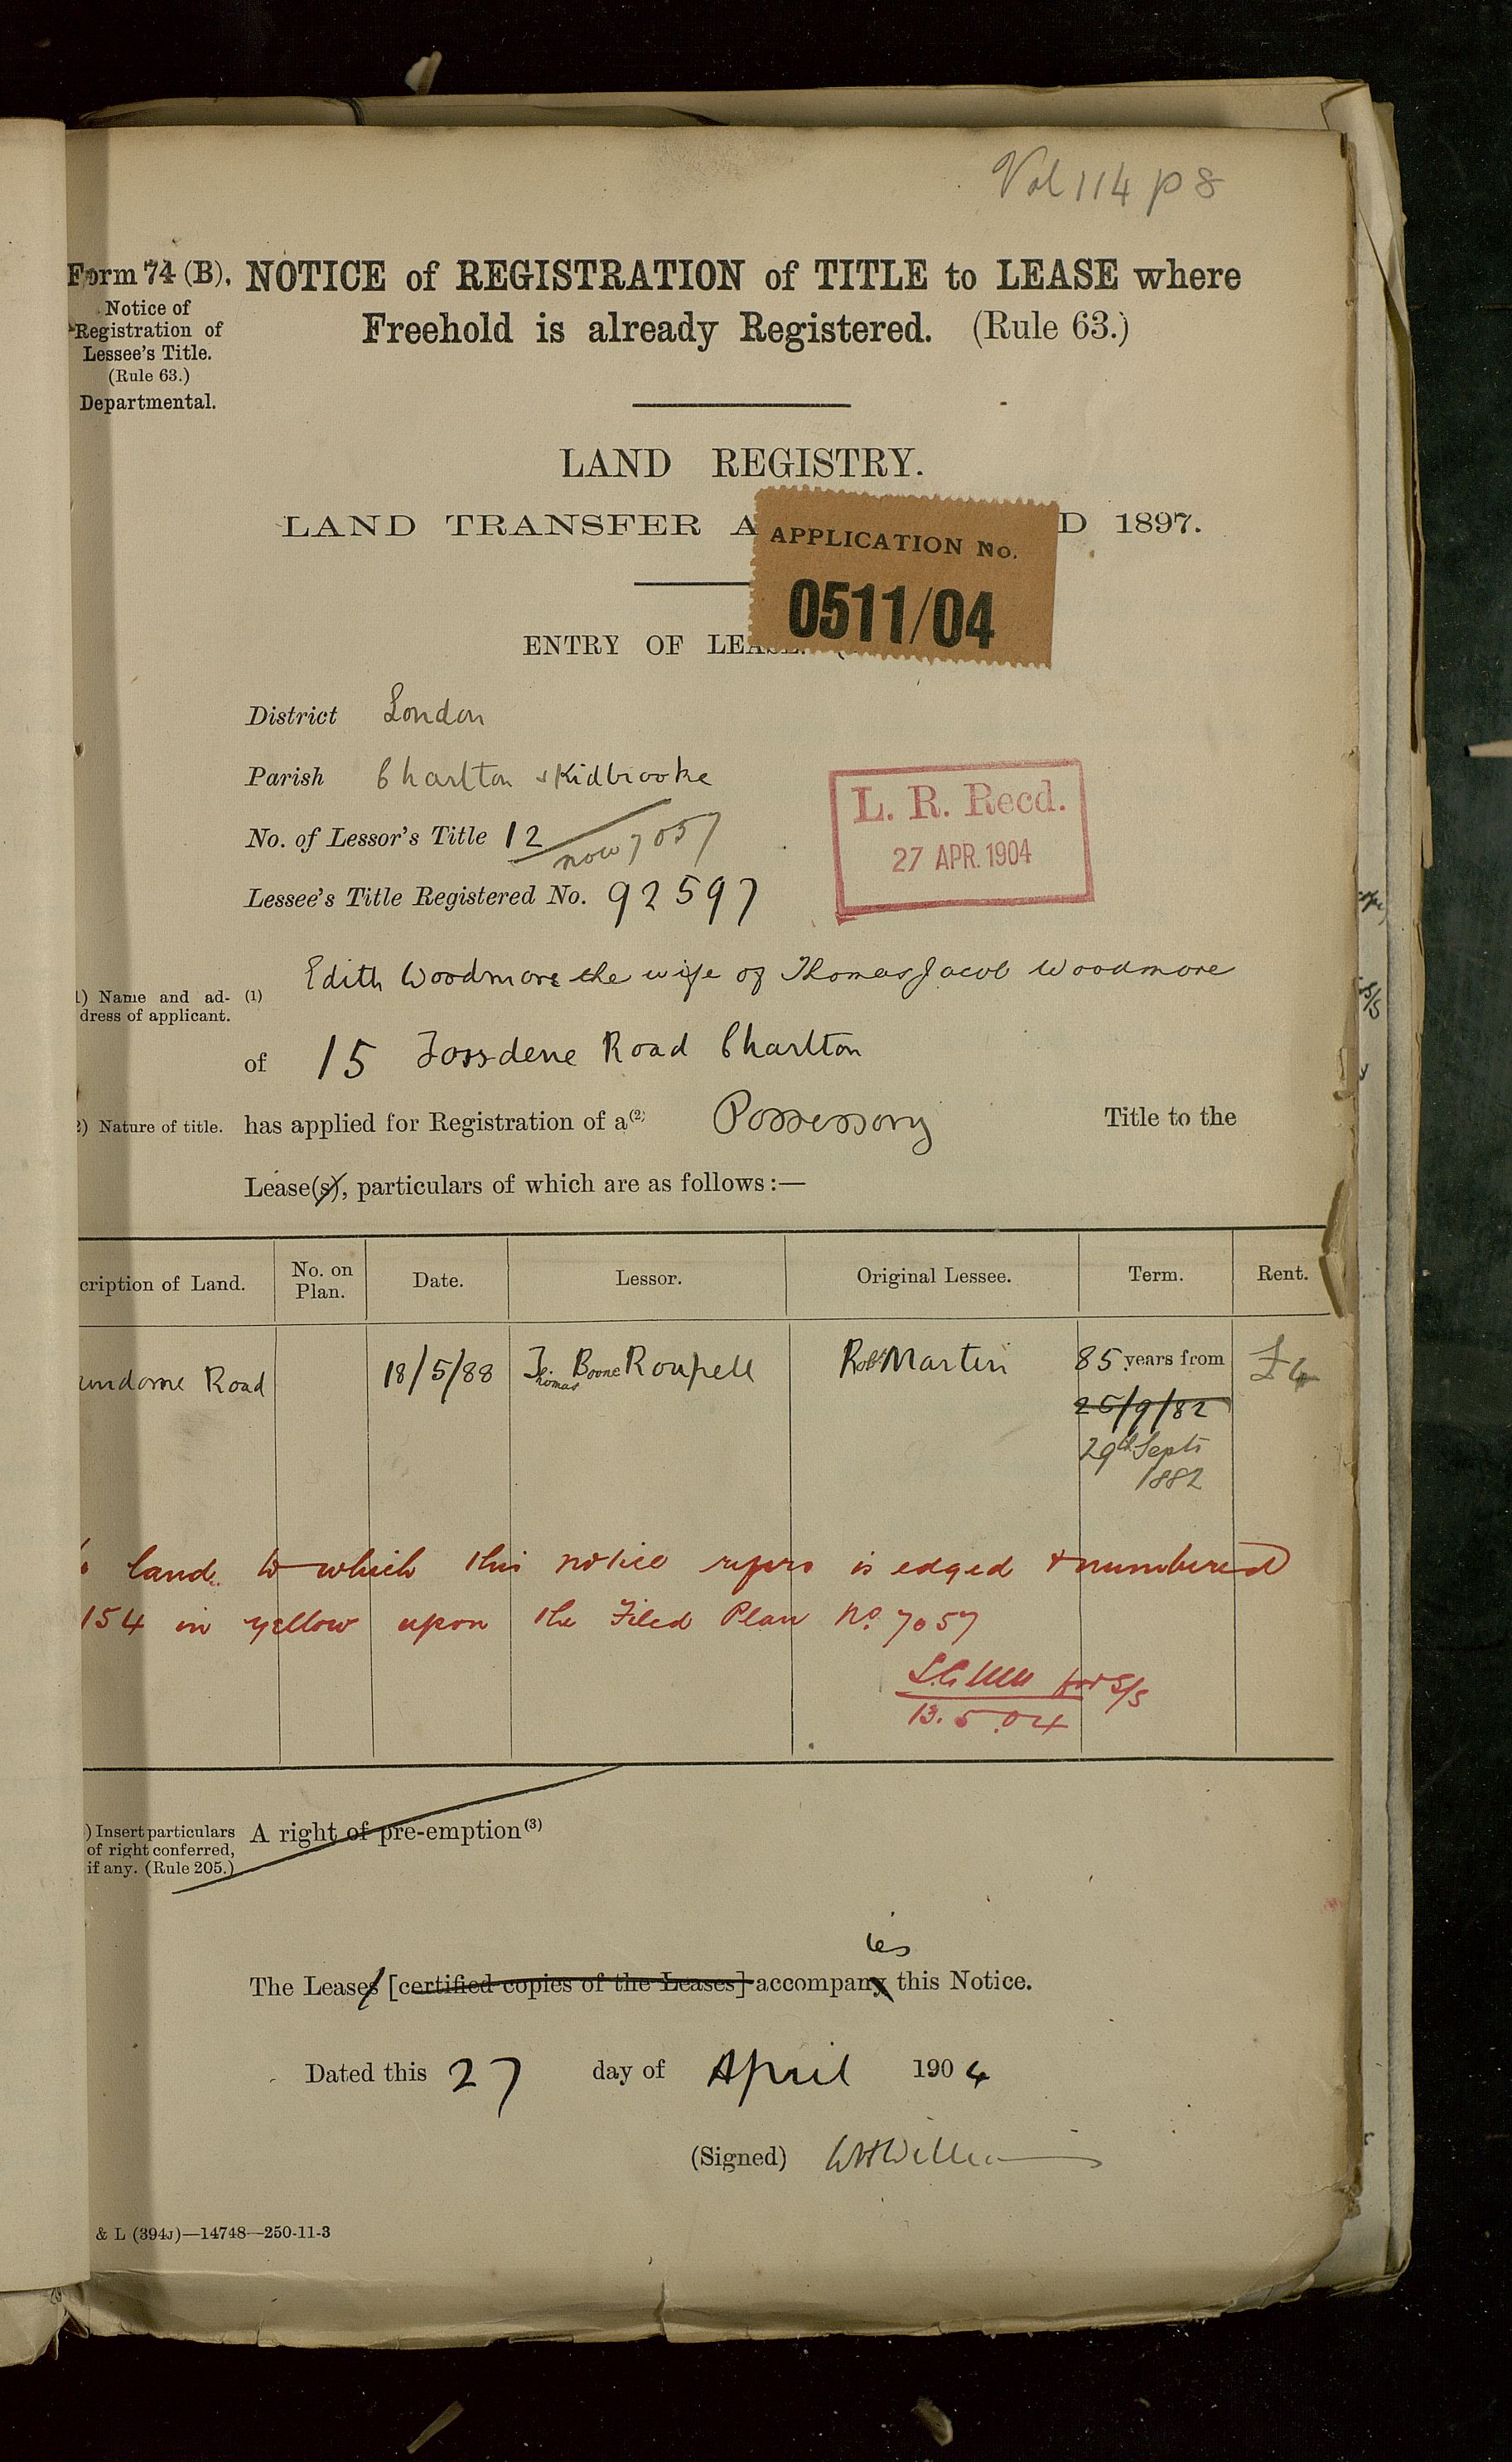 Vol 114 p 8
Form 74 (B). NOTICE of REGISTRATION of TITLE to LEASE where
Freehold is already Registered. (Rule 63.)
Notice of
Registration of
Lessee's Title.
(Rule 63.)
Departmental.
LAND REGISTRY.
LAND TRANSFER A D 1897.
APPLICATION No.
0511/04
ENTRY OF LEASE.
District London
Parish Charlton & Kidbrooke
No. of Lessor's Title 12 now 7057
Lessee's Title Registered No. 92597
L. R. Recd.
27 APR. 1904
1) Name and ad-
dress of applicant.
(1) Edith Woodmore the wife of Thomas Jacob Woodmore
of 15 Fossdene Road Charlton
2) Nature of title. has applied for Registration of a (2) Possessory Title to the
Lease(s), particulars of which are as follows:—
cription of Land. No. on Plan. Date. Lessor. Original Lessee. Term. Rent.
undome Road 18/5/88 Thomas Boone Roupell Robt Martin 85 years from £4
25/9/82
29th Septr
1882
land to which this notice refers is edged & numbered
154 in yellow upon the Filed Plan No. 7057
for S/S
13.5.04
) Insert particulars
of right conferred,
if any. (Rule 205.)
A right of pre-emption (3)
ies
The Leases [certified copies of the Leases] accompany this Notice.
Dated this 27 day of April 1904
(Signed) WH
& L (394J)—14748—250-11-3